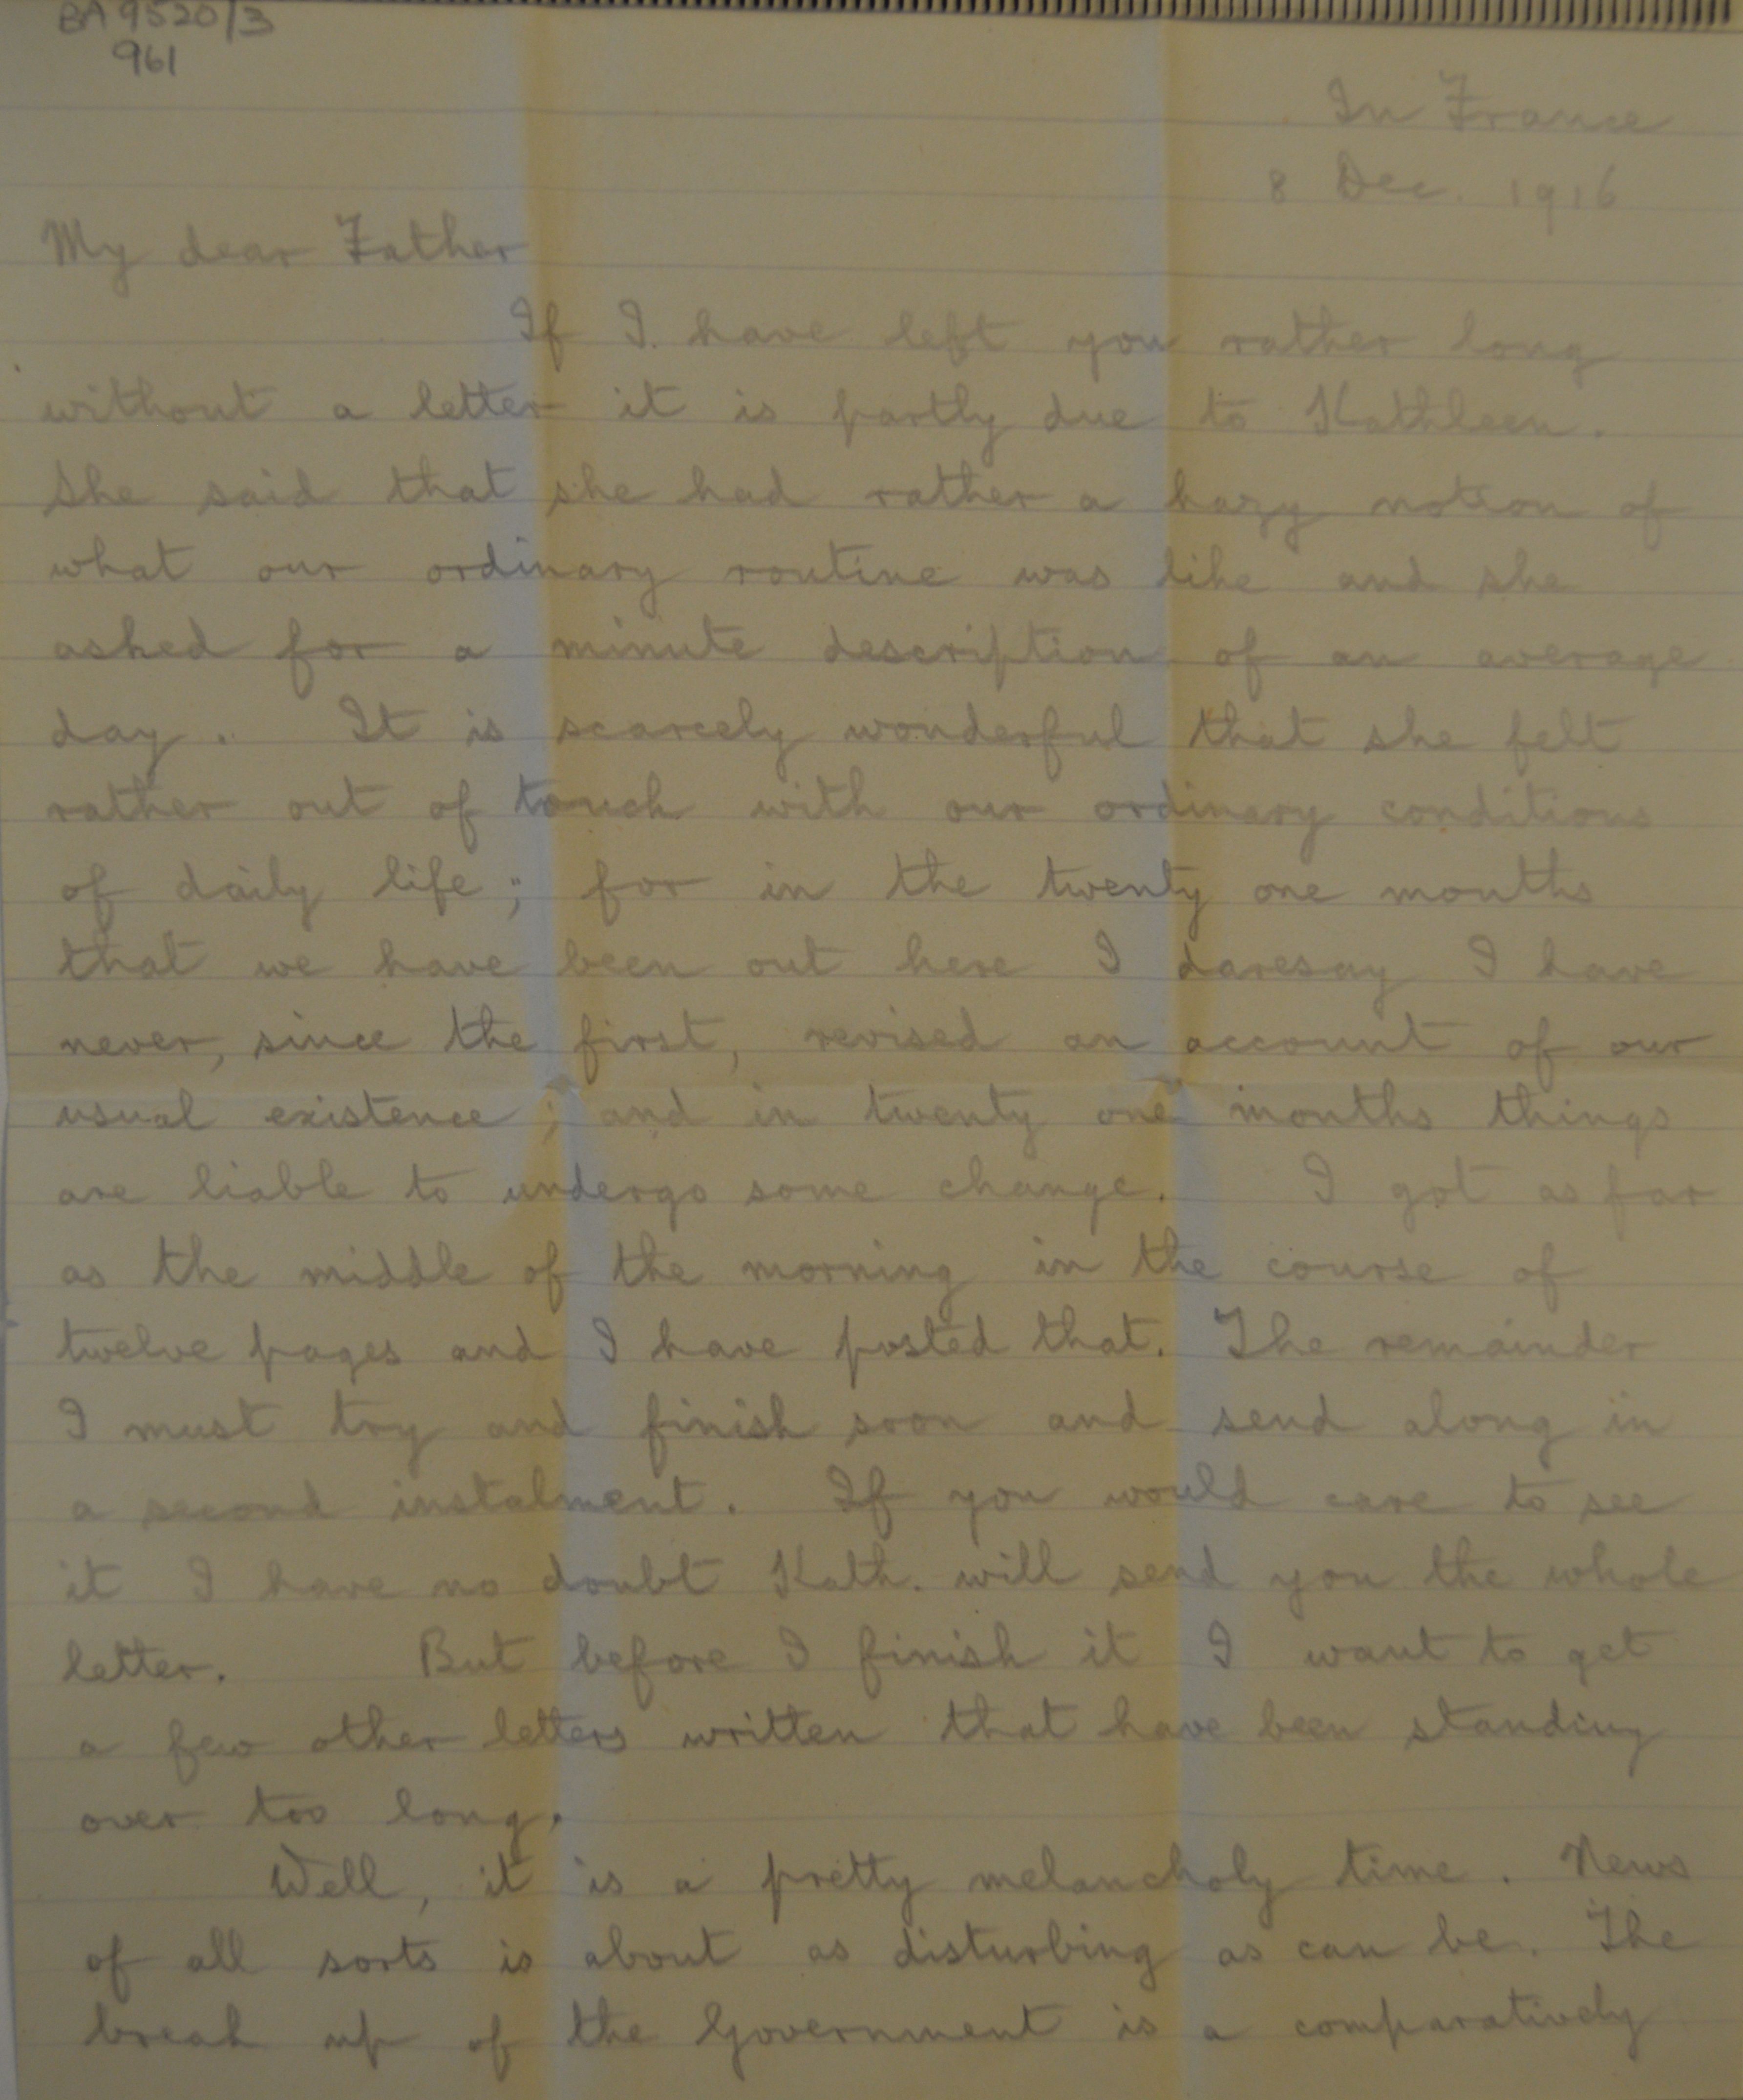 BA 9520/3
961
In France
8 Dec. 1916
My dear Father
If I have left you rather long
without a letter it is partly due to Kathleen.
She said that she had rather a hazy notion of
what our ordinary routine was like and she
asked for a minute description of an average
day. It is scarcely wonderful that she felt
rather out of touch with our ordinary conditions
of daily life; for in the twenty one months
that we have been out here I daresay I have
never, since the first, revised an account of our
usual existence; and in twenty one months things
are liable to undergo some change. I got as far
as the middle of the morning in the course of
twelve pages and I have posted that. The remainder
I must try and finish soon and send along in
a second instalment. If you would care to see
it I have no doubt Kath. will send you the whole
letter. But before I finish it I want to get
a few other letters written that have been standing
over too long.
Well, it is a pretty melancholy time. News
of all sorts is about as disturbing as can be. The
break up of the Government is a comparatively